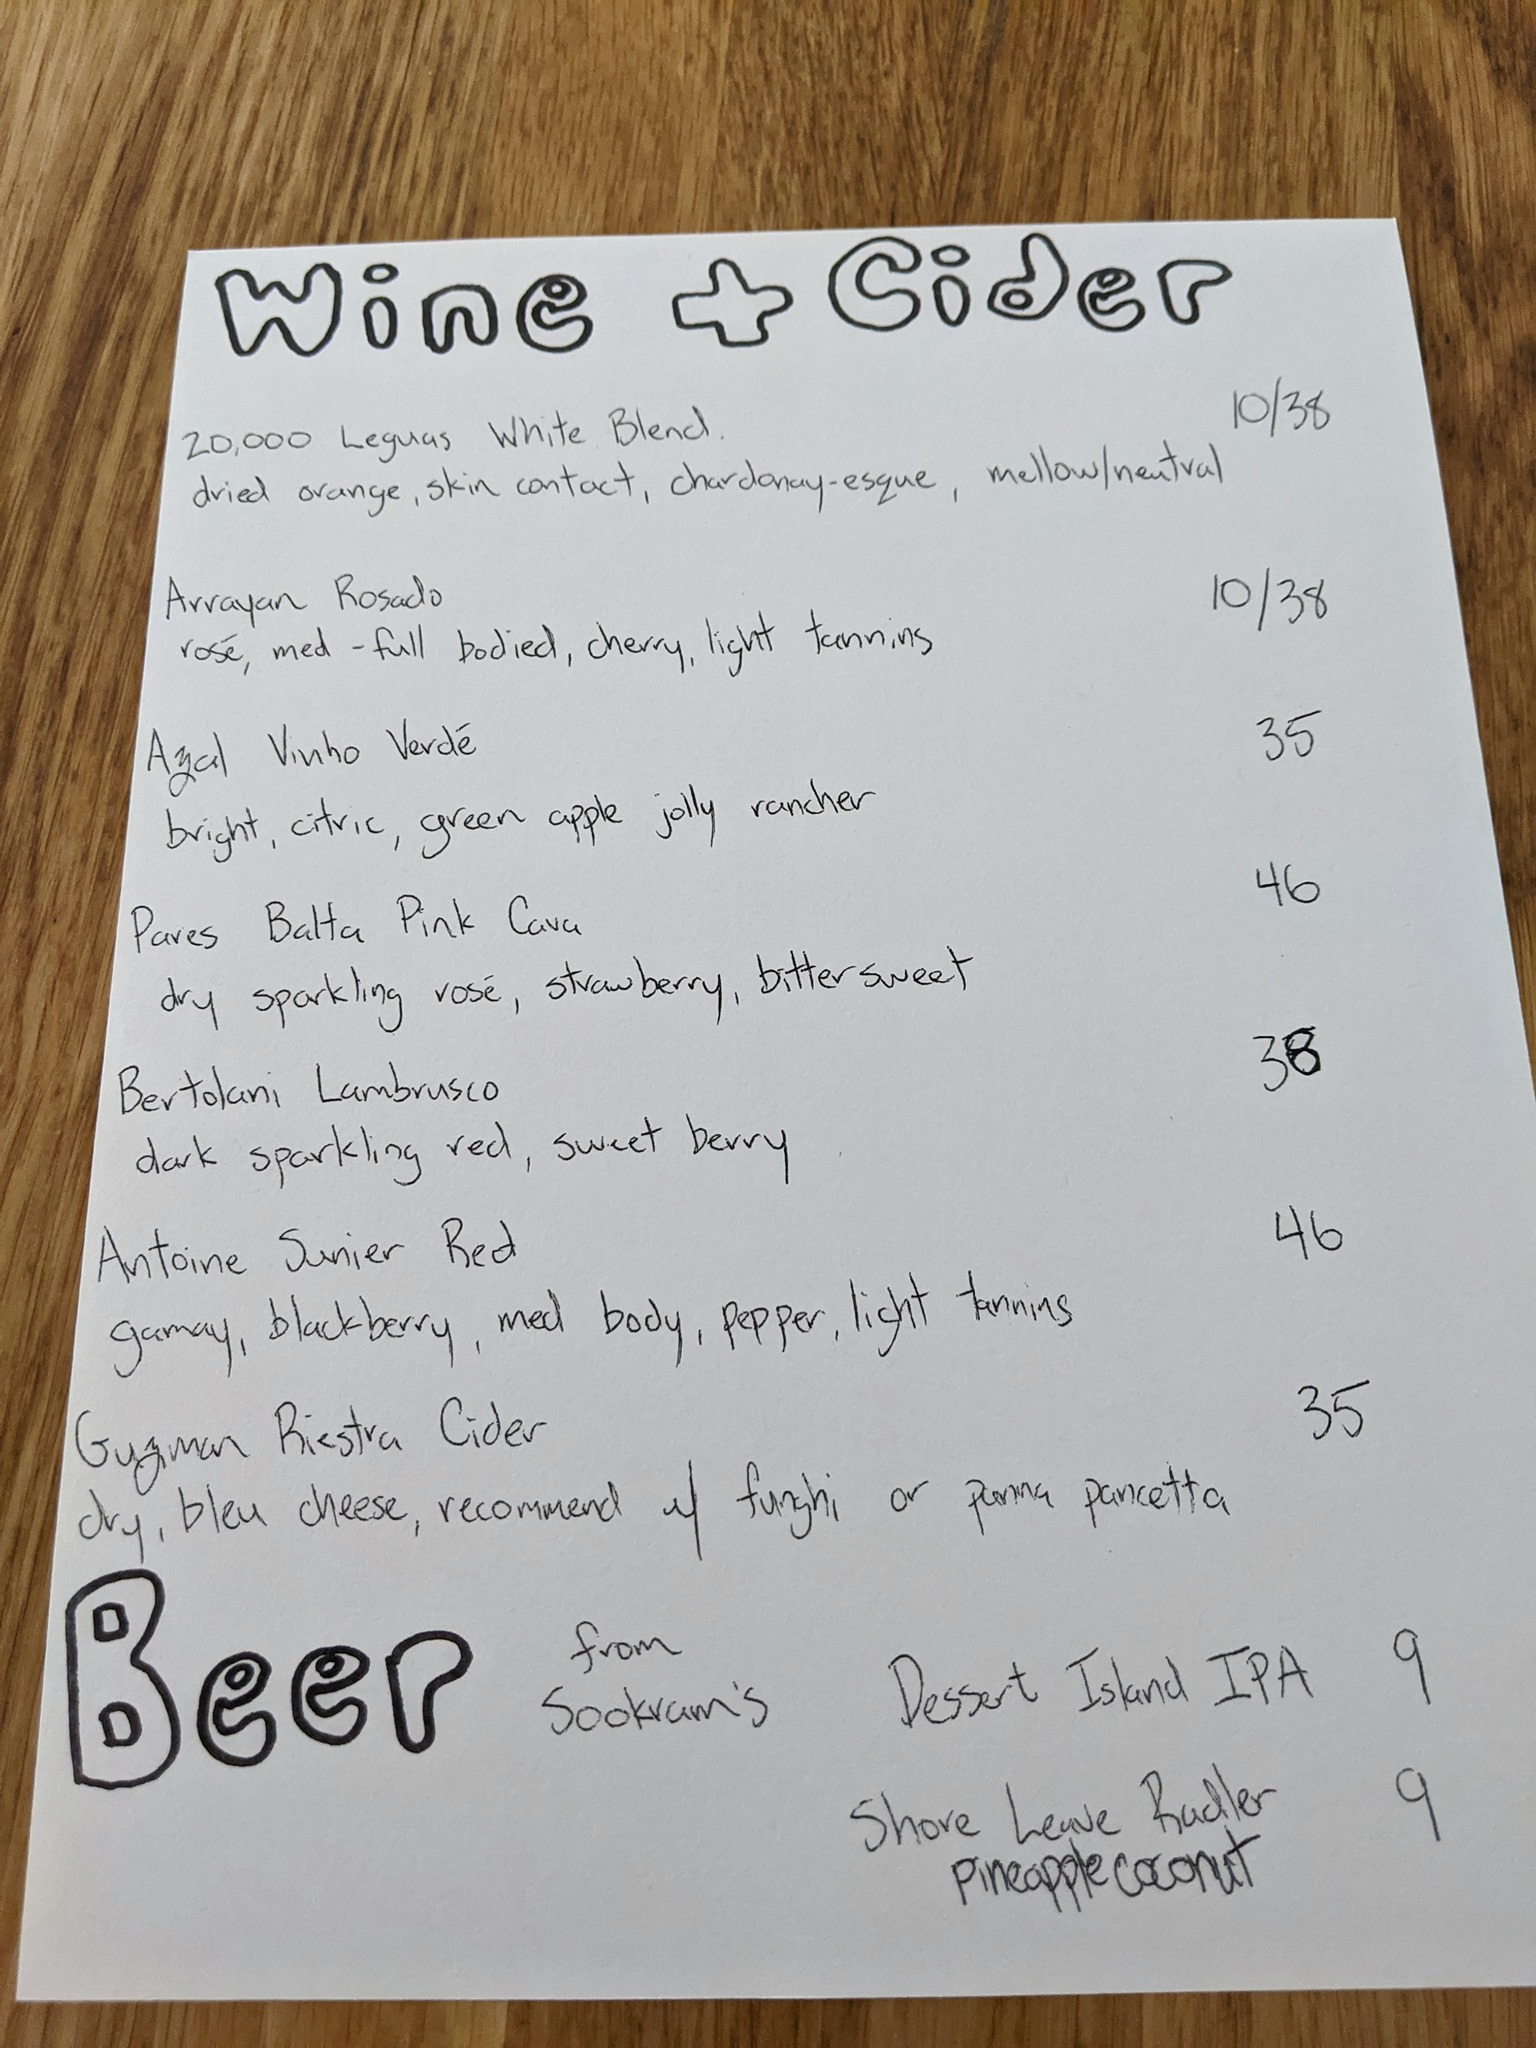 Wine + Cider
20,000 Leguas White Blend. 10/38
dried orange, skin contact, chardonay-esque, mellow/neutral
Arrayan Rosado 10/38
rosé, med-full bodied, cherry, light tannins
Azal Vinho Verdé 35
bright, citric, green apple jolly rancher
Pares Balta Pink Cava 46
dry sparkling rosé, strawberry, bittersweet
Bertolani Lambrusco 38
dark sparkling red, sweet berry
Antoine Sunier Red 46
gamay, blackberry, med body, pepper, light tannins
Guzman Riestra Cider 35
dry, bleu cheese, recommend w/ funghi or parma pancetta
Beer from Sookram's
Dessert Island IPA 9
Shore Leave Radler 9
pineapple coconut